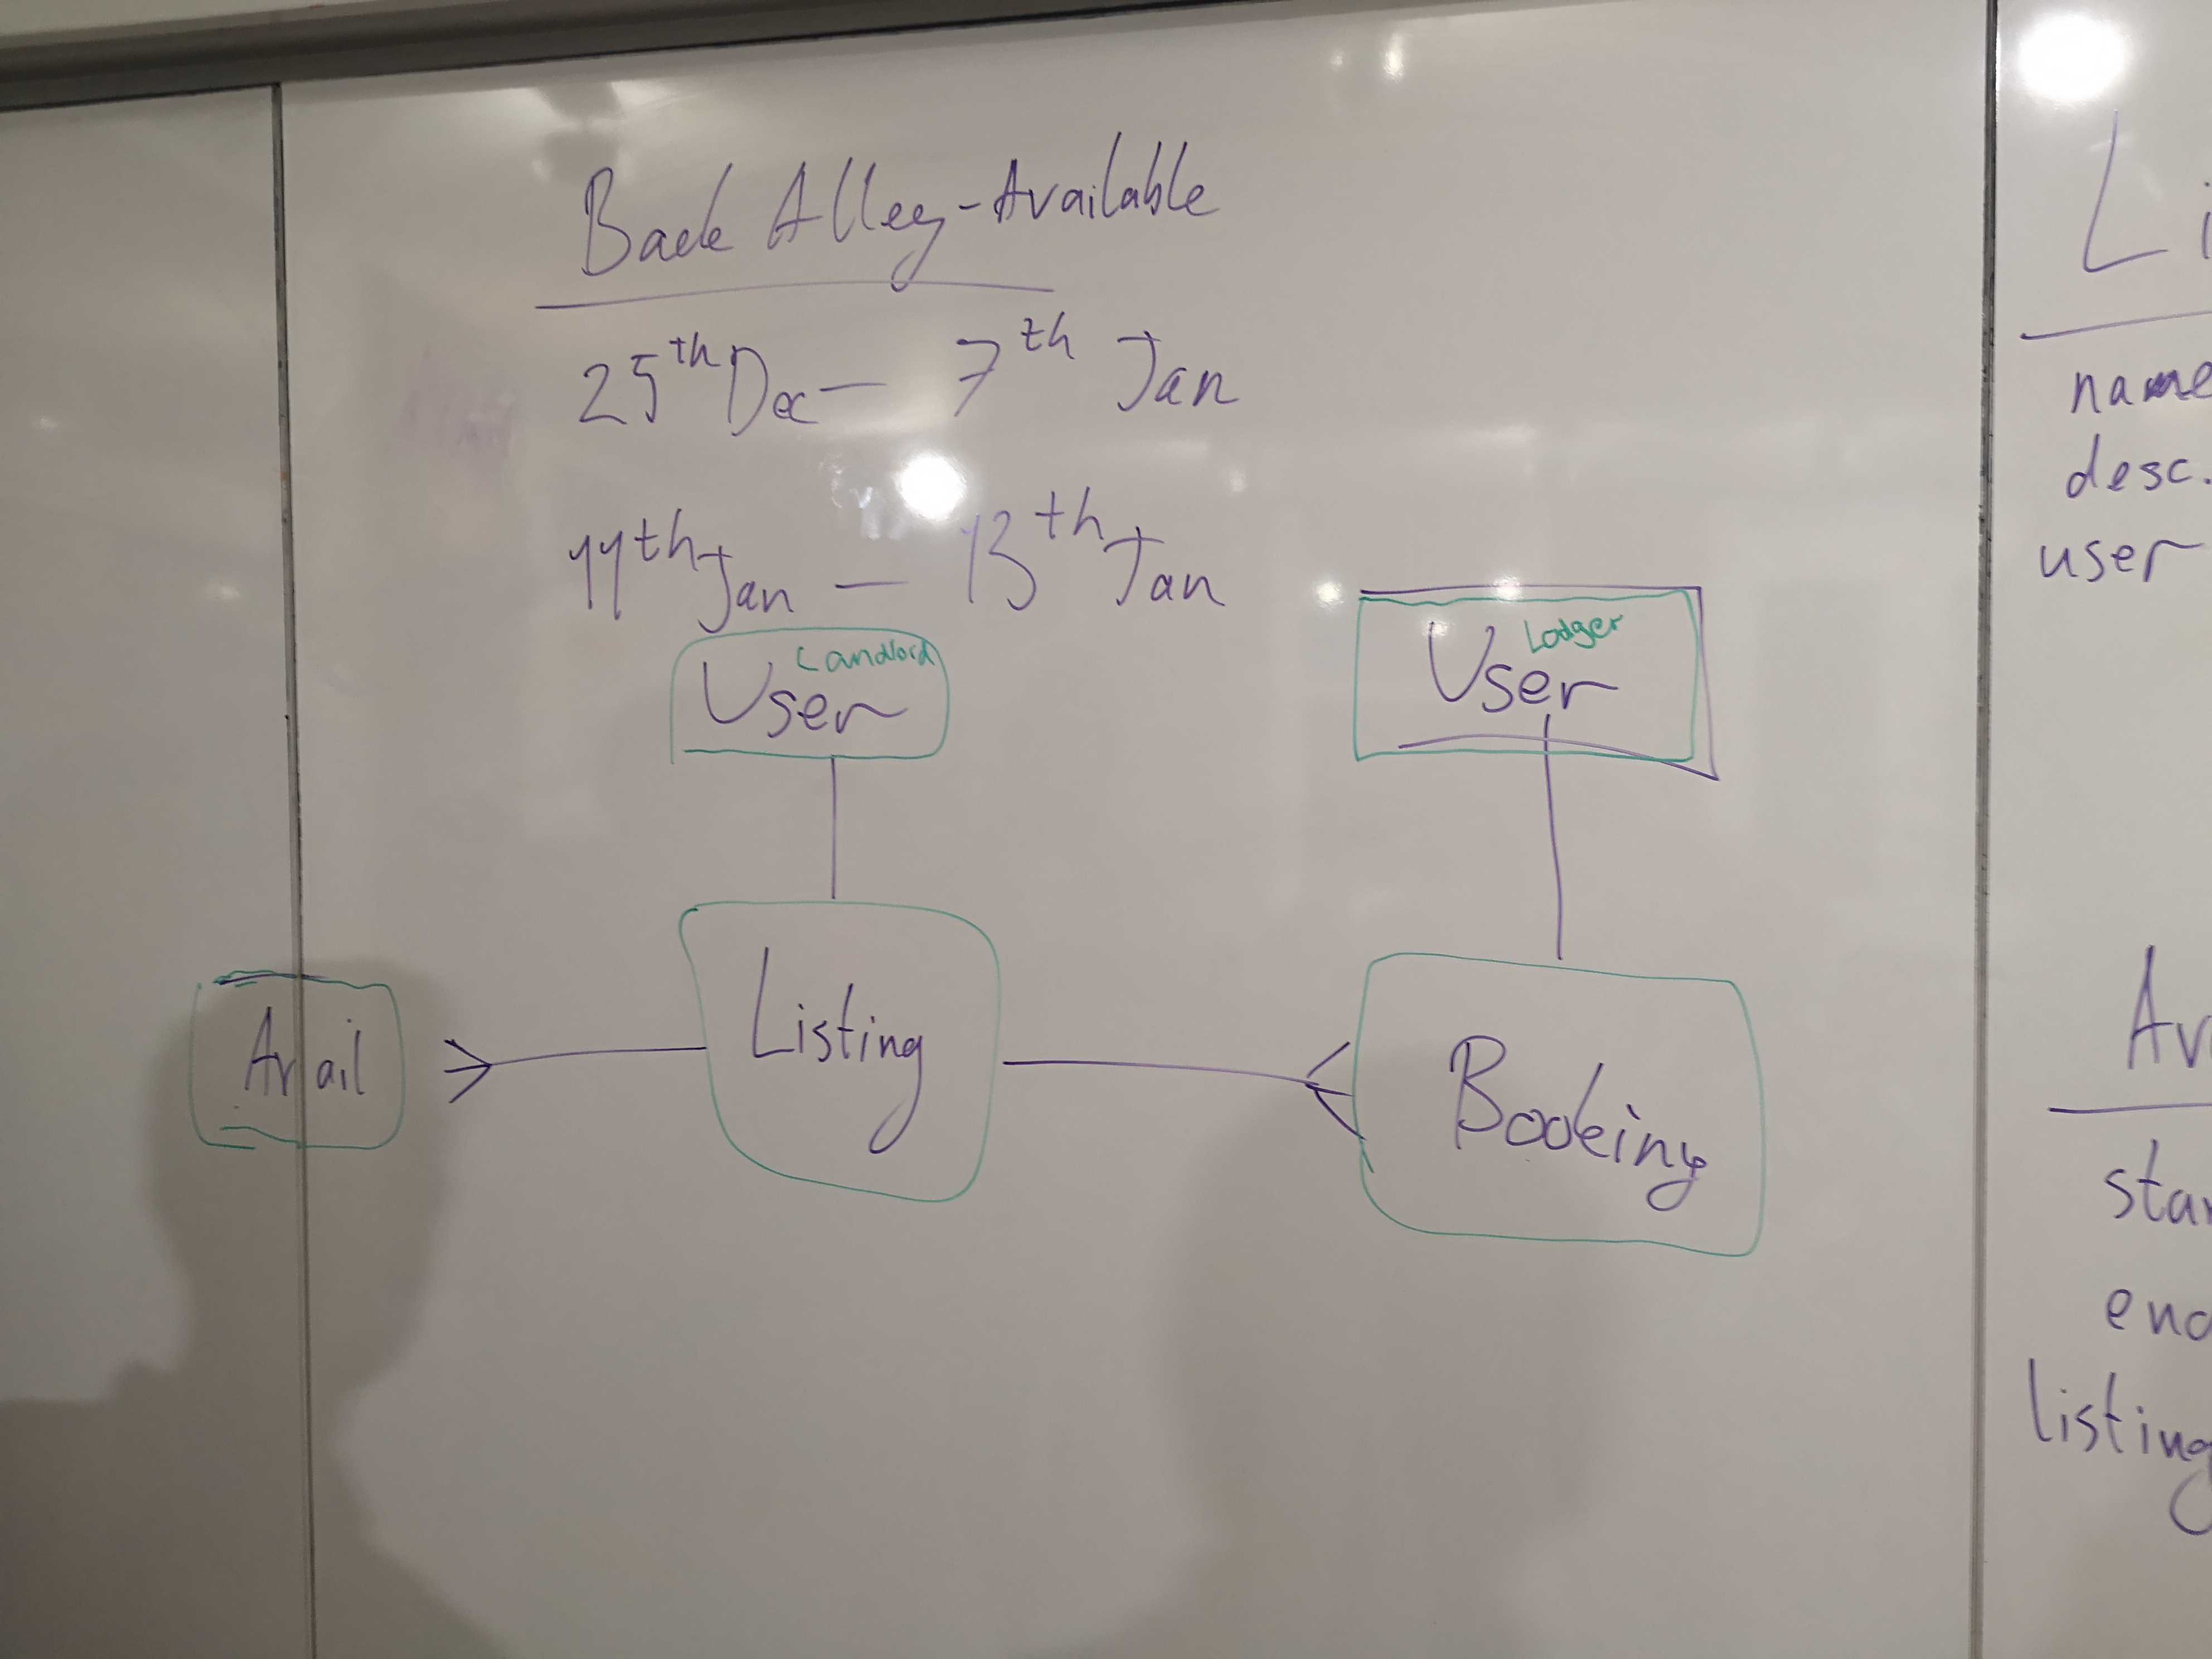 Back Alley - Available
25th Dec — 7th Jan
11th Jan — 13th Jan
Landlord
User
Lodger
User
Avail
Listing
Booking
Li
name
desc.
user
Av
star
end
listing